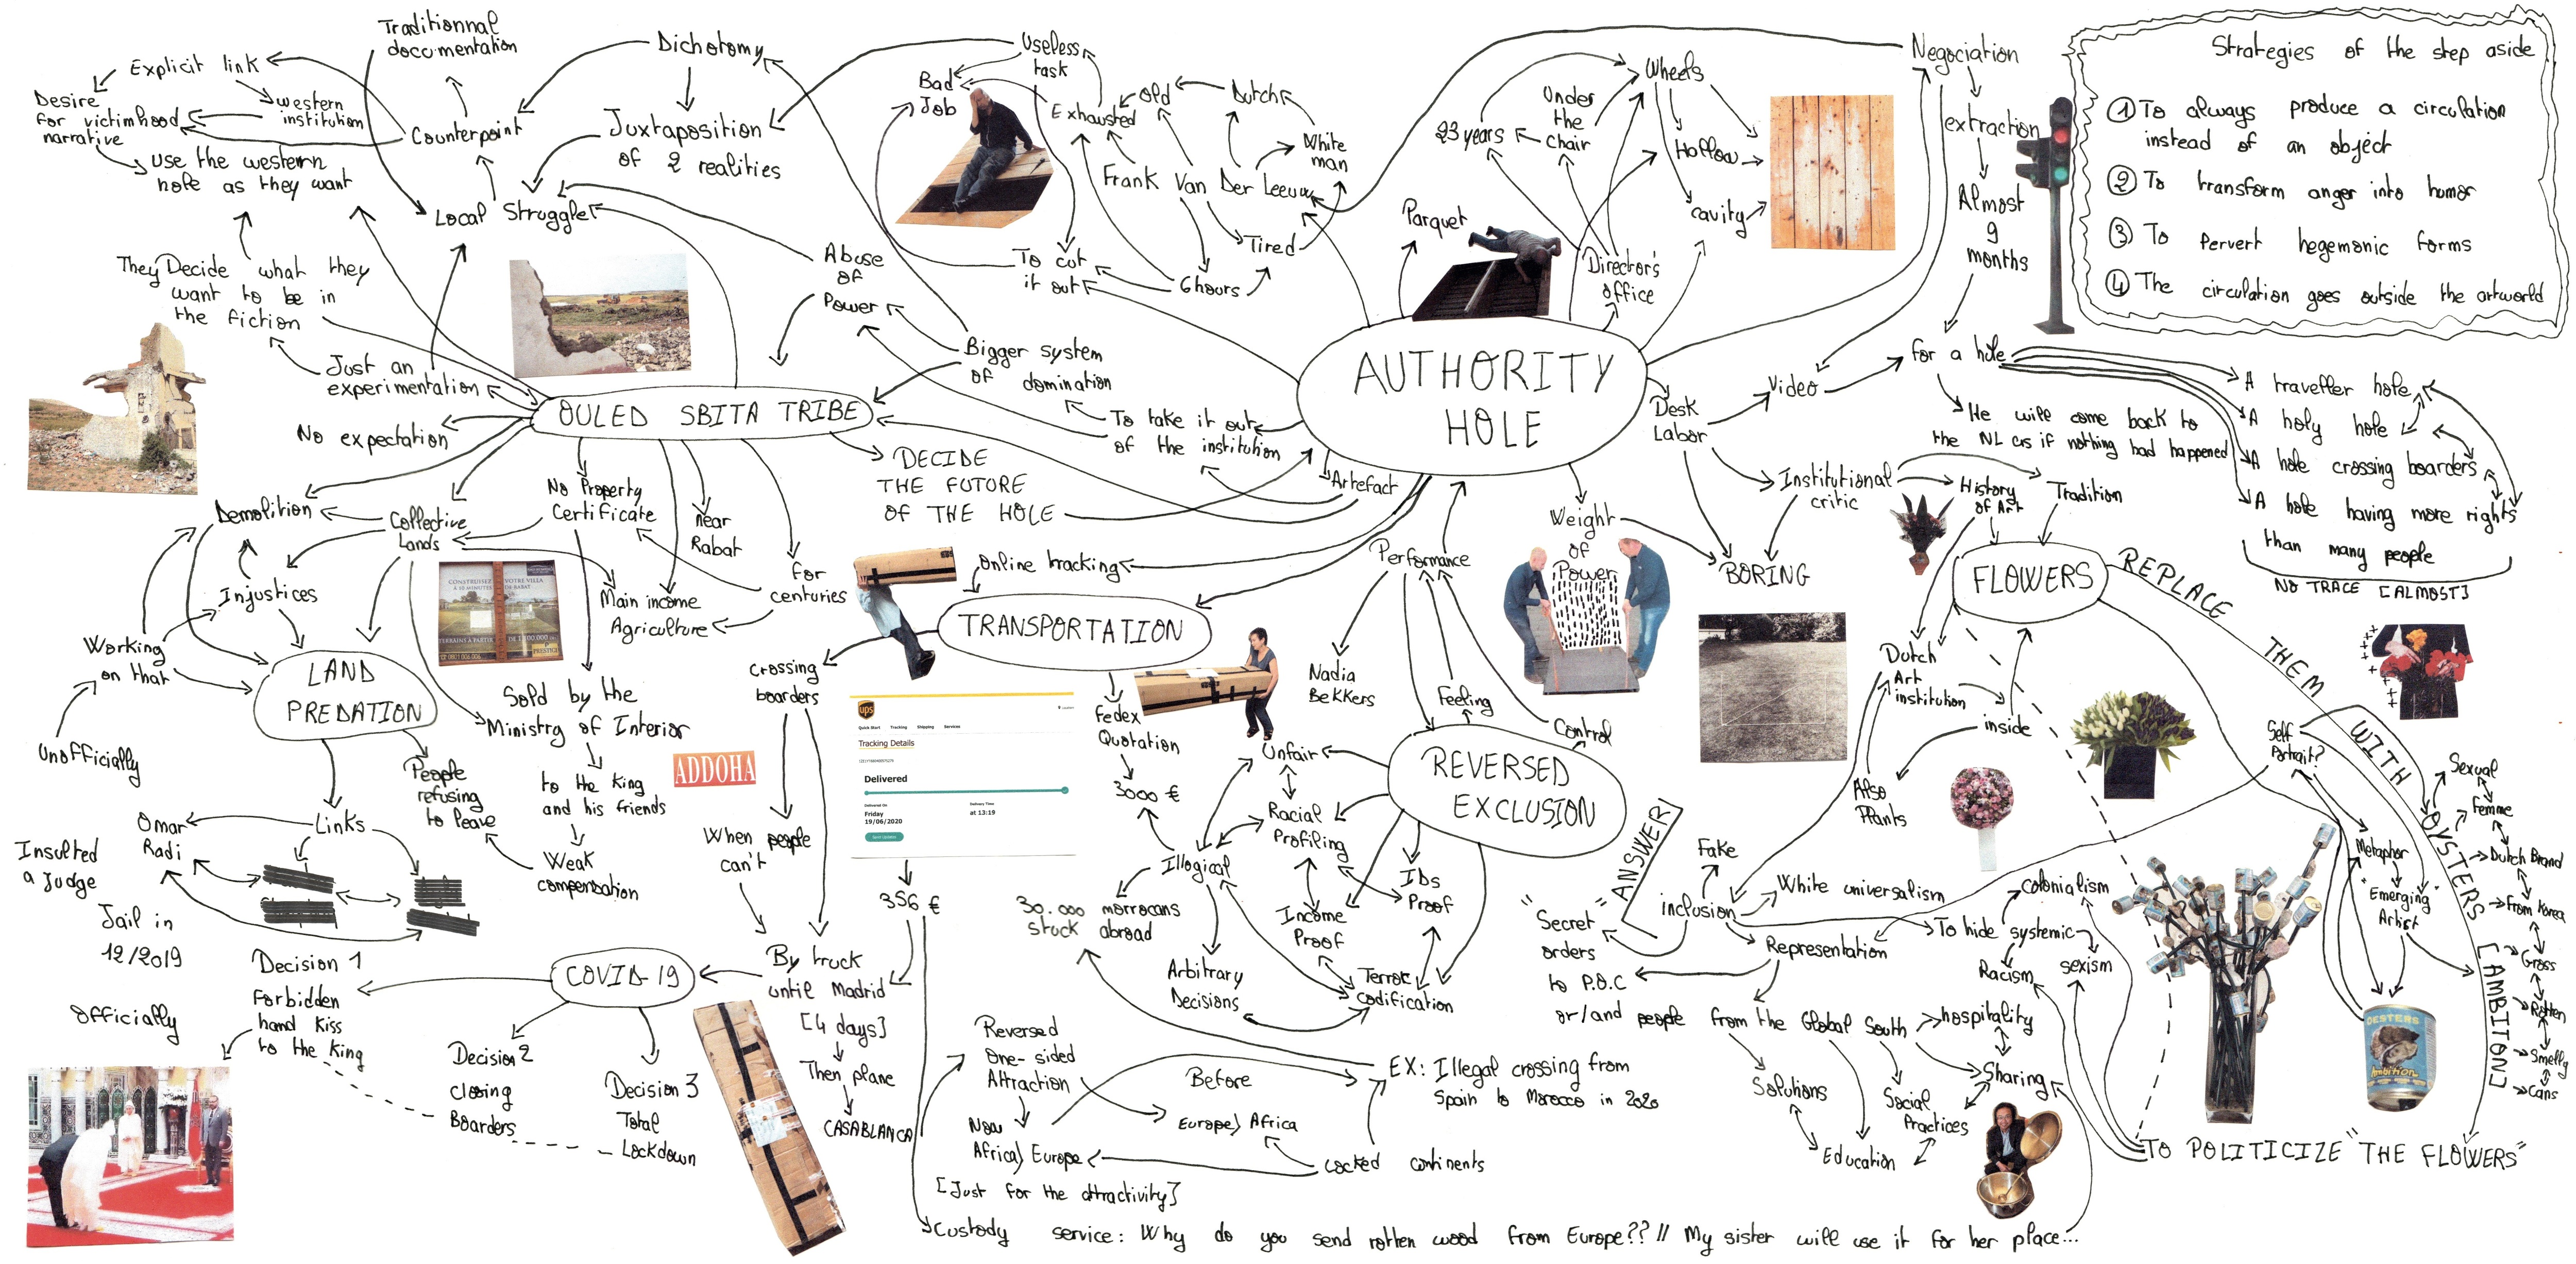 Traditionnal
documentation
Explicit link
Desire
for victimhood
narrative
western
institution
Use the western
hole as they want
Counterpoint
Dichotomy
Juxtaposition
of 2 realities
Local Struggle
They Decide what they
want to be in
the fiction
Just an
experimentation
No expectation
OULED SBITA TRIBE
Abuse
of
Power
Bigger system
of domination
To take it out
of the institution
DECIDE
THE FUTURE
OF THE HOLE
Useless
task
Bad
Job
Exhausted
Old
Dutch
White
man
Frank Van Der Leeuw
Tired
6 hours
To cut
it out
AUTHORITY
HOLE
Parquet
Artefact
23 years
Under
the
chair
Wheels
Hollow
cavity
Director's
office
Negociation
extraction
Almost
9
months
for a hole
Video
Desk
Labor
He will come back to
the NL as if nothing had happened
A traveller hole
A holy hole
A hole crossing boarders
A hole having more rights
than many people
NO TRACE [ALMOST]
Strategies of the step aside
① To always produce a circulation
instead of an object
② To transform anger into humor
③ To pervert hegemonic forms
④ The circulation goes outside the artworld
Demolition
Collective
Lands
No Property
Certificate
near
Rabat
for
centuries
Main income
Agriculture
Injustices
Working
on that
Unofficially
LAND
PREDATION
CONSTRUISEZ VOTRE VILLA
À 10 MINUTES DE RABAT
TERRAINS À PARTIR DE
PRESTIGE
Sold by the
Ministry of Interior
to the King
and his friends
Weak
compensation
People
refusing
to leave
ADDOHA
Links
Omar
Radi
Insulted
a Judge
Jail in
12/2019
Officially
Decision 1
Forbidden
hand kiss
to the King
COVID-19
Decision 2
Closing
Boarders
Decision 3
Total
Lockdown
Online tracking
TRANSPORTATION
Crossing
boarders
When people
can't
By truck
until Madrid
[4 days]
Then plane
CASABLANCA
ups
Quick Start Tracking Shipping Services
Tracking Details
Delivered
Delivered On
Friday
19/06/2020
Delivery Time
at 13:19
356 €
Fedex
Quotation
3000 €
Performance
Nadia
Bekkers
Feeling
Control
REVERSED
EXCLUSION
Unfair
Racial
Profiling
Illogical
IDs
Proof
Income
Proof
Terror
Codification
Arbitrary
Decisions
30.000 morrocans
stuck abroad
Reversed
One-sided
Attraction
Now
Africa > Europe
[Just for the attractivity]
Before
Europe > Africa
Locked continents
EX: Illegal crossing from
Spain to Morocco in 2020
Custody service: Why do you send rotten wood from Europe?? // My sister will use it for her place...
Weight
of
Power
BORING
Institutional
critic
History
of Art
Tradition
FLOWERS
Dutch
Art
institution
inside
Also
Plants
Fake
inclusion
ANSWER
"Secret"
orders
to P.O.C
or/and people from the Global South
White universalism
Representation
To hide systemic
colonialism
Racism
sexism
hospitality
Sharing
Solutions
Education
Social
Practices
REPLACE THEM WITH OYSTERS [AMBITION]
Self
Portrait?
Metaphor
"Emerging
Artist"
OESTERS
Ambition
Sexual
Femme
Dutch Brand
From Korea
Gross
Rotten
Smelly
Cans
TO POLITICIZE "THE FLOWERS"